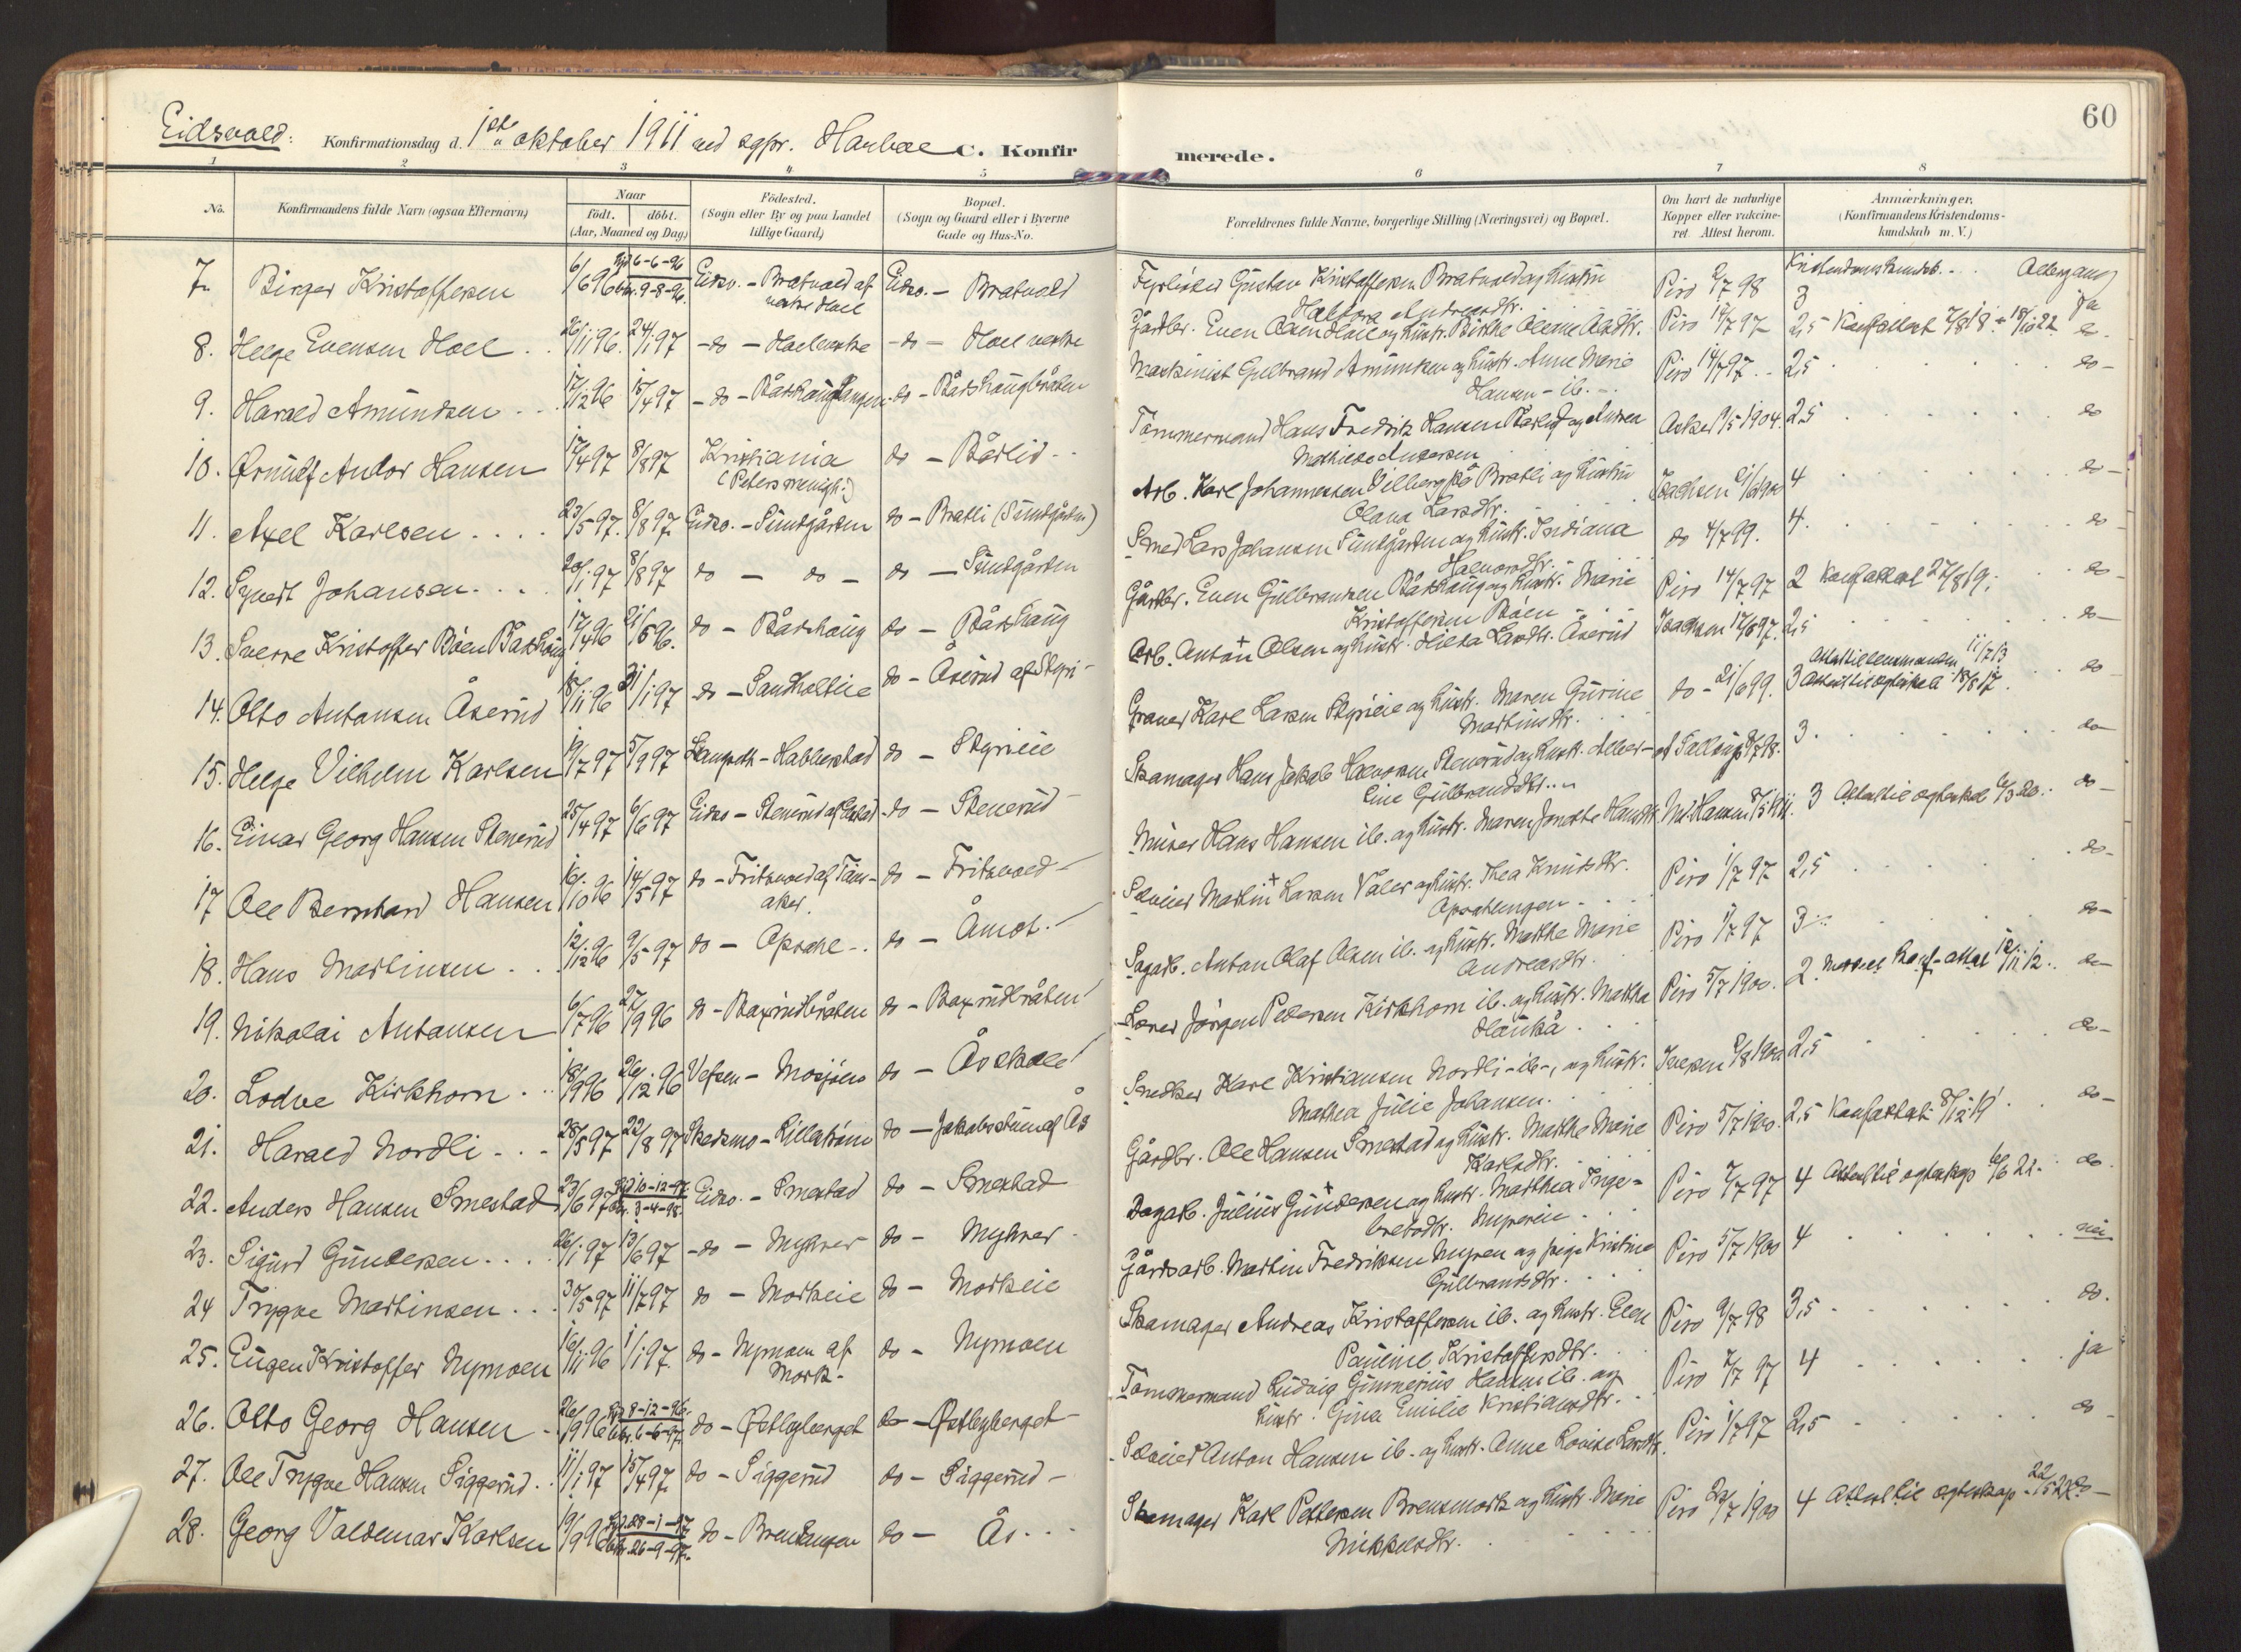 60
Eidsvold: Konfirmationsdag d. 1ste oktober 1911 ved sgpr. Hauboe C. Konfirmerede.
1 2 3 4 5 6 7 8
No. Konfirmandens fulde Navn (ogsaa Efternavn) Naar födt. döbt. (Aar, Maaned og Dag) Födested. (Sogn eller By og paa Landet tillige Gaard) Bopæl. (Sogn og Gaard eller i Byerne Gade og Hus-No. Forældrenes fulde Navne, borgerlige Stilling (Næringsvei) og Bopæl. Om havt de naturlige Kopper eller vakcineret. Attest herom. Anmærkninger, (Konfirmandens Kristendomskundskab m. V.)
Kristendomskundsk. Altergang
7. Birger Kristoffersen 6/6 96 Hjd. 6-6-96 9-8-96. Eidsv. - Bratvold af vestre Hoel Eidsv. - Bratvold Gustav Kristoffersen Bratvold og hustru Andreasdtr. Piro 2/7 98 3 ja
8. Helge Evensen Hoel 26/11 96. 24/1 97 - do - Hoel vestre - do - Hoel vestre Gårdbr. Even Olsen Hoel og hustr. Birthe Oleane Piro 14/7 97 2,5 Konf.attest 7/8 18. 18/10 22
9. Harald Amundsen 17/12 96 15/4 97 - do - Bårshaug do - Bårshaugbråten Maskinist Gulbrand Amundsen og hustr. Anne Marie Hansen - ib. Piro 14/7 97 2,5 do -
10. Ørnulf Andor Hansen 17/4 97 8/8 97 Kristiania (Peters menigh.) do - Bårlid Tömmermand Hans Fredrik Hansen Bårlid og Andrea Mathilde Andersen Asker 1/5 1904. 2,5 do
11. Axel Karlsen 23/5 97. 8/8 97. Eidsv. - Sundgården do - Bratli (Sundgården) Arb. Karl Johannessen Vilberg på Bratli og hustru Olava Larsdtr. Isachsen 21/6 1900 4 do -
12. Syverdt Johansen 20/1 97 8/8 97 do - do - do - Sundgården Smed Lars Johansen Sundgården og hustr. Indiana Halvorsdtr. do 4/7 99. 4. do -
13. Sverre Kristoffer Böen Bårshaug 17/4 96 21/5 96. do - Bårshaug do - Bårshaug Gårdbr. Even Gulbrandsen Bårshaug og hustr. Marie Kristoffersen Böen Piro 14/7 97 2 Konf.attest 27/8 19. do -
14. Otto Antonsen Åserud 18/11 96 31/1 97 do - Sandholtlie do - Åserud af Styri - Arb. Anton + Olsen og hustr. Hilda Larsdtr. Åserud Isachsen 17/6 97. 2,5 do -
15. Helge Vilhelm Karlsen 19/7 97 5/9 97 Langseth - Hablerstad do - Styrilie Graver Karl Larsen Styrilie og hustr. Maren Gurine Martinsdtr. do - 21/6 99. 3 Attest til lensmanden 11/7 13 do
16. Einar Georg Hansen Stenerud 25/4 97 6/6 97 Eidsv - Stenerud do - Stenerud Skomager Hans Jakob Halvorsen Stenerud og hustr. Albertine Gulbrandsdtr. 3. do
17 Ole Bernhard Hansen 16/10 96 14/5 97 do - Fritsvold af Tönsaker. do - Fritsvold - Murer Hans Hansen ib. og hustr. Maren Jonette Hansdtr. 3 Attest til egteskab 6/3 20. do -
18. Hans Martinsen 12/12 96 9/5 97 do - Opsahl do - Åmot. Martin + Larsen Våler og hustr. Thea Knudsdtr. Opsahlengen Piro 1/7 97 2,5 do -
19. Nikolai Antonsen 6/7 96 27/9 96 do - Boxrudbråten do - Boxrudbråten Sagarb. Anton Olaf Olsen ib. og hustr. Marthe Marie Andreasdtr. Piro 1/7 97 3 do -
20. Lodve Kirkhorn 18/9 96 26/12 96 Vefsen - Mosjöen do - Ås skole Lærer Jörgen Pedersen Kirkhorn ib. og hustr. Martha Hauskå Piro 5/7 1900. 2. Konf-attest 12/11 12. do -
21. Harald Nordli 28/5 97 22/8 97 Skedsmo - Lilleström do - Jakobsstuen af Ås Snedker Karl Kristiansen Nordli - ib -, og hustr. Mathea Julie Johansen. 2/8 1900 2,5 do -
22. Anders Hansen Smestad 23/6 97 10-12-97. 3-4-98. Eidsv. - Smestad do - Smestad Gårdbr. Ole Hansen Smestad og hustr. Marthe Marie Karlsdtr. Piro 5/7 1900. 2,5 Konf.attest 8/12 19. do -
23. Sigurd Gundersen 26/1 97 13/6 97 - do - Myhrer do - Myhrer Dagarb. Julius + Gundersen og hustr. Matthea Ingebretsdtr. Piro 7/7 97 4 Attest til egteskap 6/6 21. do.
24 Trygve Martinsen 30/5 97 11/7 97 do - Morklie do - Morklie Gårdsarb. Martin Fredriksen Myren og pige Kristine Gulbrandsdtr. Piro 5/7 1900 4 nei
25. Eugen Kristoffer Nymoen 16/11 96 1/1 97. do - Nymoen af Mork - do - Nymoen Skomager Andreas Kristoffersen ib. og hustr. Elen Pauline Kristoffersdtr. Piro 9/7 98 3,5 do.
26. Otto Georg Hansen 26/9 96 8-12-96. 6-6-97. do - Østbyberget do - Østbyberget Tömmermand Ludvig Gunnerius Hansen ib. og hustr. Gina Emilie Kristiansdtr. Piro 7/7 97 4 ja
27. Ole Trygve Hansen Siggerud 11/1 97 15/4 97. do - Siggerud do - Siggerud - Anton Hansen ib. og hustr. Anne Lovise Larsdtr. Piro 1/7 97 2,5 do -
28. Georg Valdemar Karlsen 19/9 96 28-1-97 26-9-97. do - do - Ås Skomager Karl Pettersen Brensmork og hustr. Marie Mikkelsdtr. Piro 1900 4 Attest til egteskap 22/5 22. do -